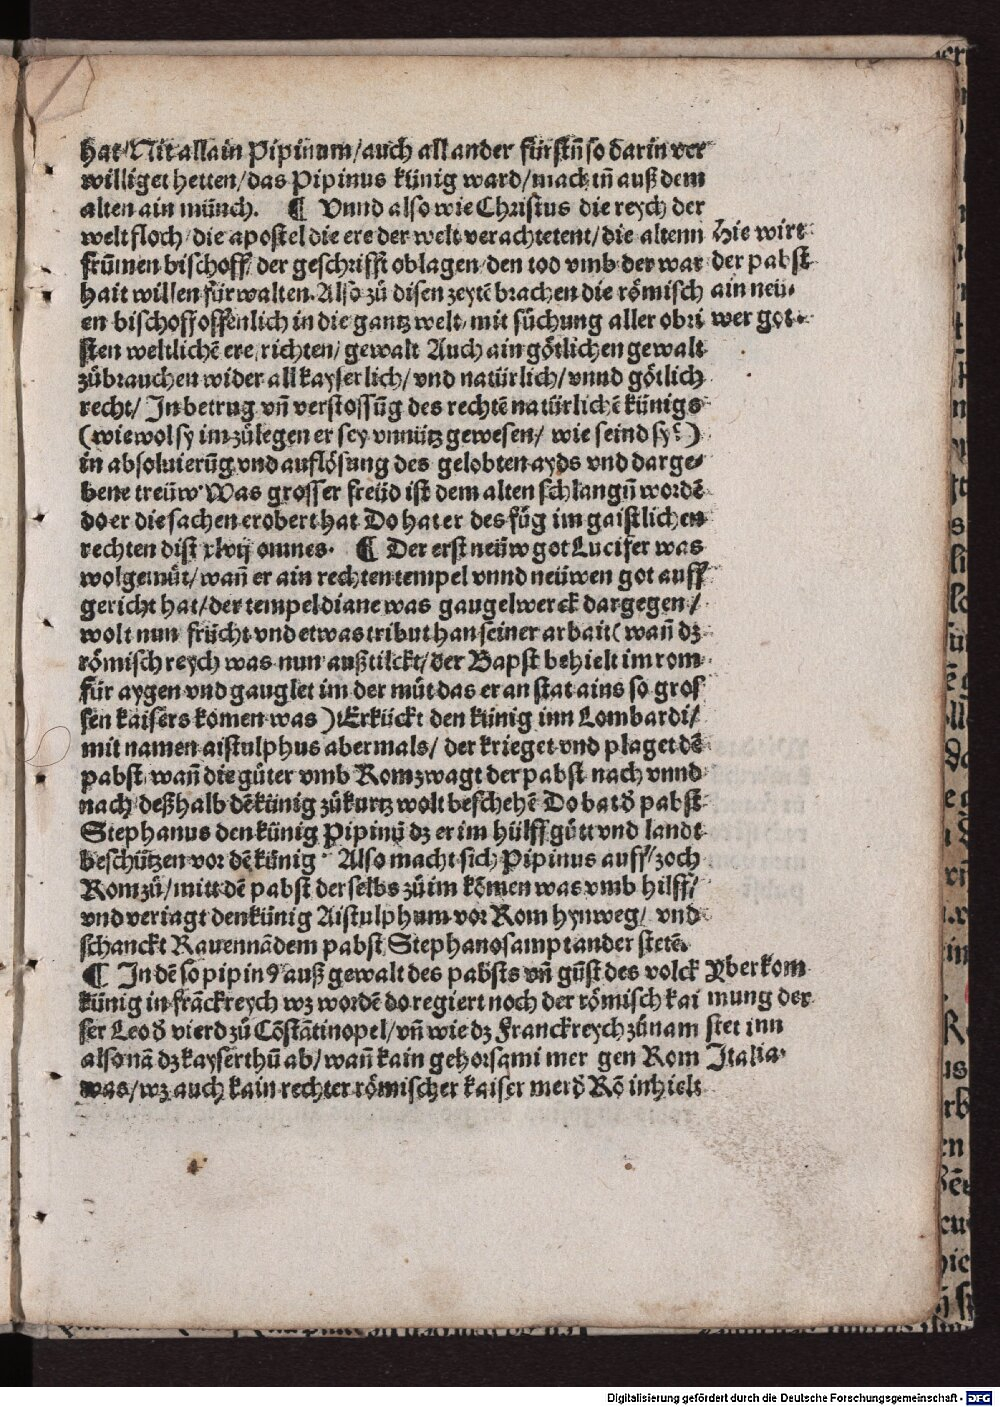 hat/Nit allain Pipinum/auch all ander fürstñ so darin ver
williget hetten/das Pipinus künig ward/machtñ auß dem
alten ain münch. ¶ Vnnd also wie Christus die reych der
welt floch/die apostel die ere der welt verachtetent/die altenn
frūmen bischoff/der geschrifft oblagen/den tod vmb der war
hait willen für walten. Also zů disen zeytē brachen die römisch
en bischoff offenlich in die gantz welt/mit sůchung aller obri
sten weltlichē ere, richten/gewalt Auch ain götlichen gewalt
zůbrauchen wider all kayserlich/vnd natürlich/vnnd götlich
recht/Jn betrug vñ verstossūg des rechtē natürlichē künigs
(wiewol sy im zůlegen er sey vnnütz gewesen/wie seind sy?)
in absoluierūg vnd auflösung des gelobten ayds vnd darge-
bene treüw. Was grosser freüd ist dem alten schlangñ wordē
do er die sachen erobert hat Do hat er des fůg im gaistlichen
rechten dist xlvij omnes. ¶ Der erst neüw got Lucifer was
wolgemůt/wañ er ain rechten tempel vnnd neüwen got auff
gericht hat/der tempel diane was gaugelwerck dargegen/
wolt nun frücht vnd etwas tribut han seiner arbait(wañ dz
römisch reych was nun außtilckt/der Bapst behielt im rom
für aygen vnd gauglet im der můt das er an stat ains so gros
sen kaisers komen was)Erkückt den künig inn Lombardi/
mit namen aistulphus abermals/der krieget vnd plaget dē
pabst, wañ die güter vmb Rom zwagt der pabst nach vnnd
nach/deßhalb dē künig zůkurtz wolt beschehē Do bat d̄ pabst
Stephanus den künig Pipinū dz er im hülff gůtt vnd landt
beschützen vor dē künig. Also macht sich Pipinus auff/zoch
Rom zů/mitt dē pabst der selbs zů im kōmen was vmb hilff/
vnd veriagt den künig Aistulphum vor Rom hynweg/vnd
schanckt Rauennā dem pabst Stephano sampt ander stetē.
¶ Jn dē so pipin⁹ auß gewalt des pabsts vñ gūst des volck
künig in frāckreych wz wordē do regiert noch der römisch kai
ser Leo d̄ vierd zů Cōstātinopel/vñ wie dz Franckreych zůnam
also nā dz kayserthū ab/wañ kain gehorsami mer gen Rom
was/wz auch kain rechter römischer kaiser mer d̄ Rō inhielt
Hie wirt
der pabst
ain neü-
wer got.
Yberkom
mung der
stet inn
Jtalia.
Digitalisierung gefördert durch die Deutsche Forschungsgemeinschaft - DFG